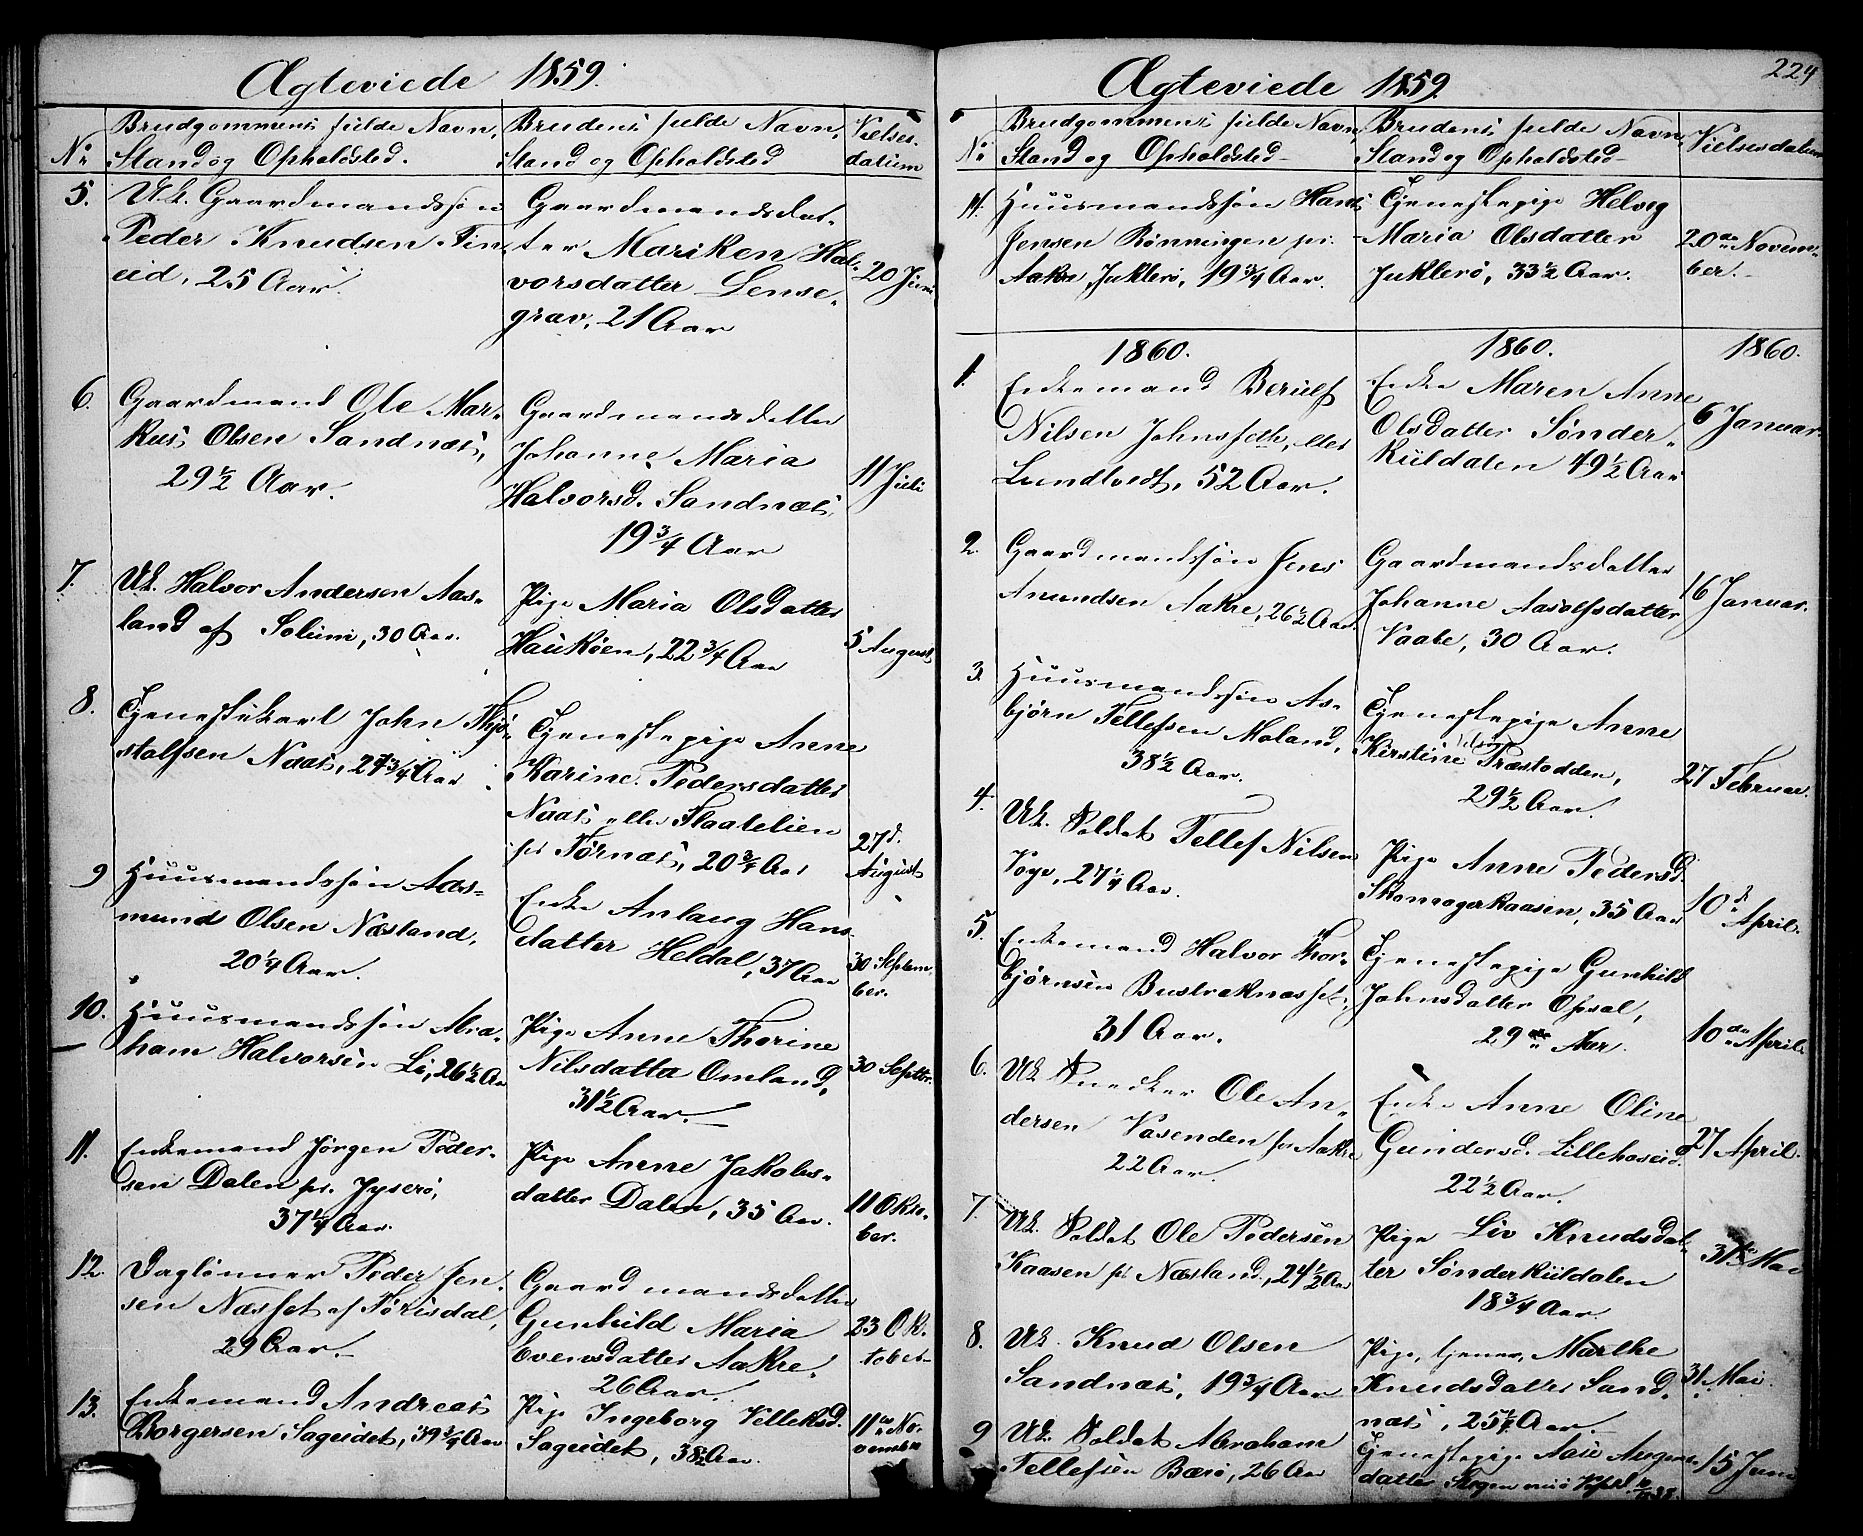 Ægteviede 1859.
No
Brudgommens fulde Navn,
Stand og Opholdsted.
Brudens fulde Navn,
Stand og Opholdsted
Vielses-
datum
5.
Uk. Gaardmandssøn
Peder Knudsen Fin-
eid, 25 Aar.
Gaardmandsdat-
ter Mariken Hal-
vorsdatter Lense-
grav, 21 Aar
20 Juni
6.
Gaardmand Ole Mar-
kus Olsen Sandnæs,
29½ Aar.
Gaardmandsdatter
Johanne Maria
Halvorsd. Sandnæs,
19¾ Aar
11 Juli
7.
Uk. Halvor Andersen Aas-
land af Solum, 30 Aar.
Pige Maria Olsdatter
Haukøen, 22¾ Aar
5 August
8.
Tjenestekarl John Thjø-
stolfsen Naas, 27¾ Aar
Tjenestepige Anne
Karine Pedersdatter
Naas eller Flaatelien
pr Tørnæs, 20¾ Aar
27d.
August
9
Huusmandssøn Aas-
mund Olsen Næsland,
20¼ Aar.
Enke Anlaug Hans-
datter Heldal, 37 Aar
30 Septem-
ber.
10.
Huusmandssøn Abra-
ham Halvorsen Li, 26½ Aar
Pige Anne Thorine
Nilsdatter Omland,
31½ Aar.
30 Septbr.
11.
Enkemand Jørgen Peder-
sen Dalen pr. Jyserø,
37¼ Aar.
Pige Anne Jakobs-
datter Dalen, 35 Aar.
11 Okto-
ber.
12.
Daglønner Peder Jen-
sen Næsset af Tørisdal,
29 Aar.
Gaardmandsdatter
Gunhild Maria
Evensdatter Aakre,
26 Aar.
23 Ok-
tober
13.
Enkemand Andreas
Borgersen Sageidet, 39¾ Aar
Pige Ingeborg Velleksd.
Sageidet, 38½ Aar.
11te No-
vember
224
Ægteviede 1859.
No
Brudgommens fulde Navn,
Stand og Opholdsted
Brudens fulde Navn
Stand og Opholdsted
Vielsesdatum
14.
Huusmandssøn Hans
Jensen Rönningen pr.
Aakre, Juklerö, 19¾ Aar.
Tjenestepige Helveg
Maria Olsdatter
Juklerö, 33½ Aar.
20de Novem-
ber.
1860.
1860.
1860.
1.
Enkemand Berulf
Nilsen Johnsseth, eller
Lundtvedt, 52 Aar.
Enke Maren Anne
Olsdatter Sönder-
Kiildalen 49½ Aar
6 Januar.
2.
Gaardmandssøn Jens
Amundsen Aakre, 26½ Aar.
Gaardmandsdatter
Johanne Aasolfsdatter
Vaabe, 30 Aar.
16 Januar.
3.
Huusmandssøn As-
bjørn Tellefsen Moland,
38½ Aar.
Tjenestepige Anne
Kirstine Træstodden,
29½ Aar.
27 Februar.
4.
Uk. Soldat Tellef Nilsen
Voge, 27¼ Aar.
Pige Anne Pedersd.
Skomagerkaasen, 35 Aar
10d April.
5.
Enkemand Halvor Thor-
bjørnsen Bustraknæsset,
31 Aar.
Tjenestepige Gunhild
Johnsdatter Opsal,
29 Aar.
10de April.
6.
Uk Snedker Ole An-
dersen Vasenden pr Aakre
22 Aar.
Enke Anne Oline
Gundersd. Lillehaseid.
22½ Aar.
27 April.
7.
Uk. Soldat Ole Pedersen
Kaasen pr Næsland, 24½ Aar
Pige Liv Knudsdat-
ter Sönderkiildalen
18¾ Aar.
31te Mai
8.
Uk. Knud Olsen
Sandnæs, 19¾ Aar
Pige, tjener, Marthe
Knudsdatter Sand-
næs, 25¼ Aar.
31. Mai.
9
Uk. Soldat Abraham
Tellefsen Bærö, 26 Aar
Tjenestepige Aase Augens-
datter
15 Juni